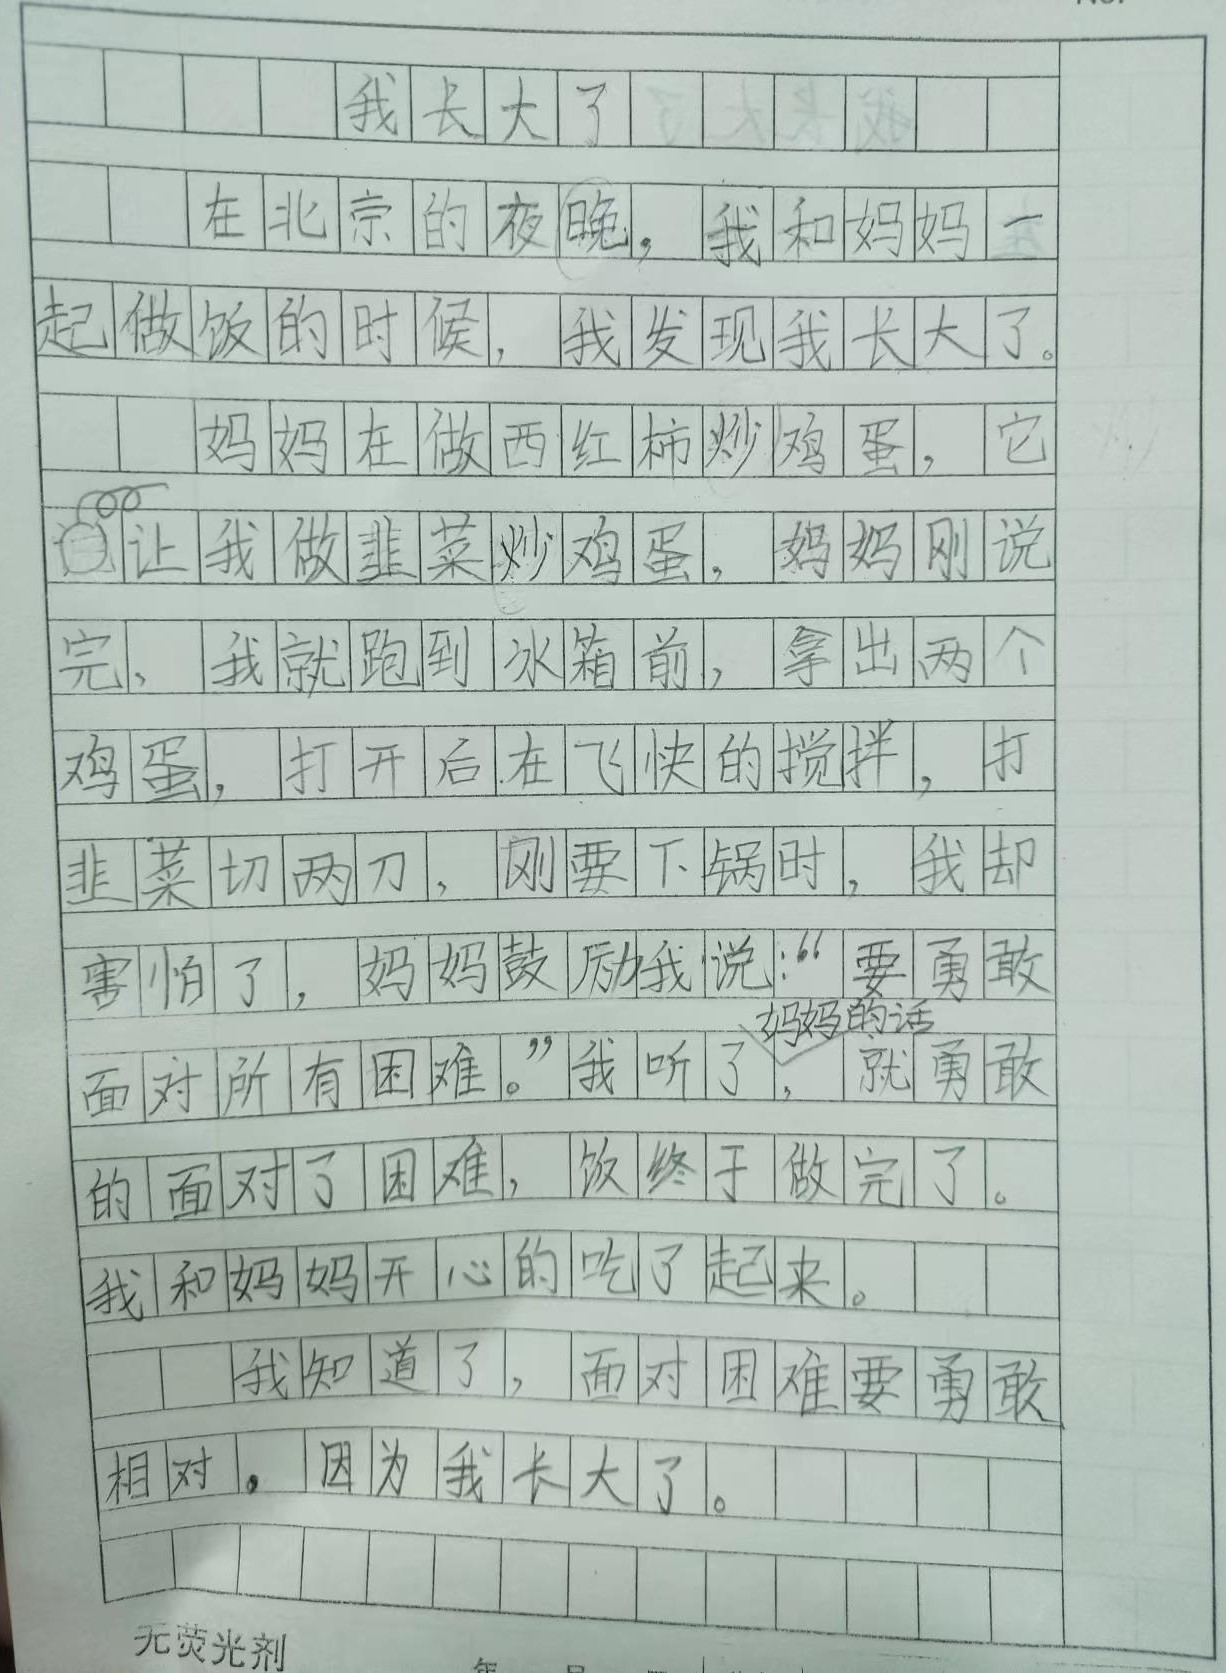 我长大了
在北京的夜晚，我和妈妈一
起做饭的时候，我发现我长大了。
妈妈在做西红柿炒鸡蛋，它
让我做韭菜炒鸡蛋，妈妈刚说
完、我就跑到冰箱前，拿出两个
鸡蛋，打开后在飞快的搅拌，打
韭菜切两刀，刚要下锅时，我却
害怕了，妈妈鼓励我说：“要勇敢
面对所有困难。”我听了妈妈的话，就勇敢
的面对了困难，饭终于做完了。
我和妈妈开心的吃了起来。
我知道了，面对困难要勇敢
相对。因为我长大了。
无荧光剂